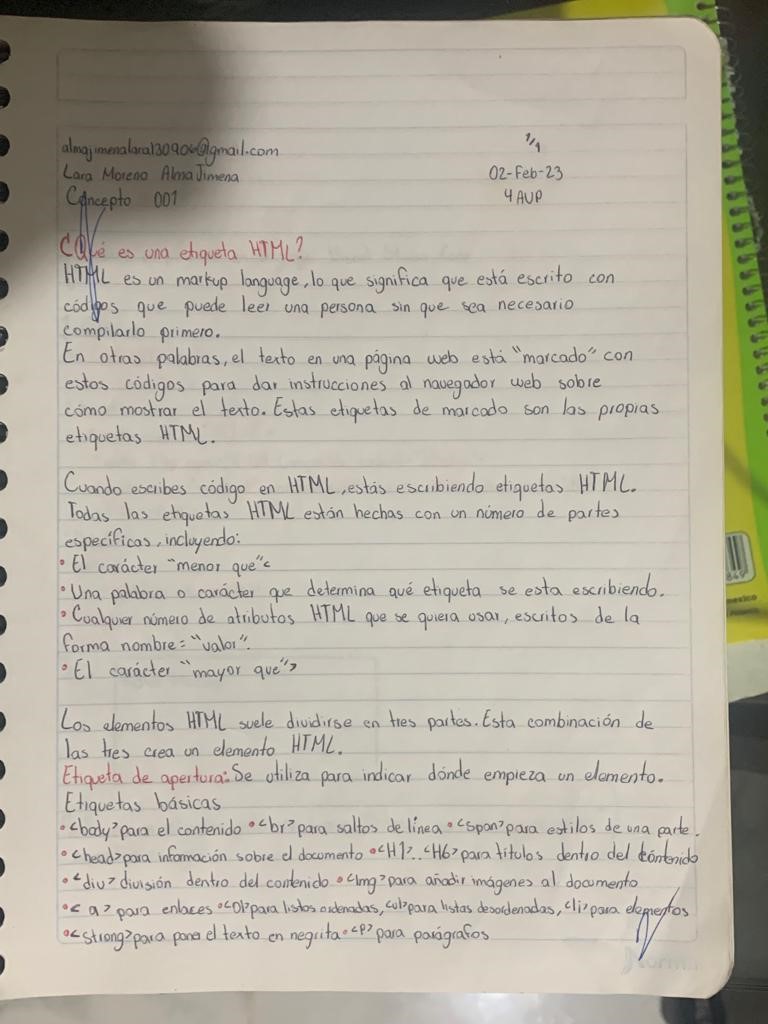 1/1
almajimenalara130906@gmail.com
Lara Moreno Alma Jimena 02-Feb-23
Concepto 001 4 AVP
¿Qué es una etiqueta HTML?
HTML es un markup language, lo que significa que está escrito con
códigos que puede leer una persona sin que sea necesario
compilarlo primero.
En otras palabras, el texto en una página web está "marcado" con
estos códigos para dar instrucciones al navegador web sobre
cómo mostrar el texto. Estas etiquetas de marcado son las propias
etiquetas HTML.
Cuando escribes código en HTML, estás escribiendo etiquetas HTML.
Todas las etiquetas HTML están hechas con un número de partes
específicas, incluyendo:
• El carácter "menor que"<
• Una palabra o carácter que determina qué etiqueta se esta escribiendo.
• Cualquier número de atributos HTML que se quiera usar, escritos de la
forma nombre="valor".
• El carácter "mayor que">
Los elementos HTML suele dividirse en tres partes. Esta combinación de
las tres crea un elemento HTML.
Etiqueta de apertura: Se utiliza para indicar dónde empieza un elemento.
Etiquetas básicas
• <body> para el contenido • <br> para saltos de línea • <span> para estilos de una parte.
• <head> para información sobre el documento • <H1>..<H6> para títulos dentro del contenido
• <div> división dentro del contenido • <Img> para añadir imágenes al documento
• < a > para enlaces • <Ol> para listas ordenadas, <ul> para listas desordenadas, <li> para elementos
• <strong> para poner el texto en negrita • <P> para parágrafos